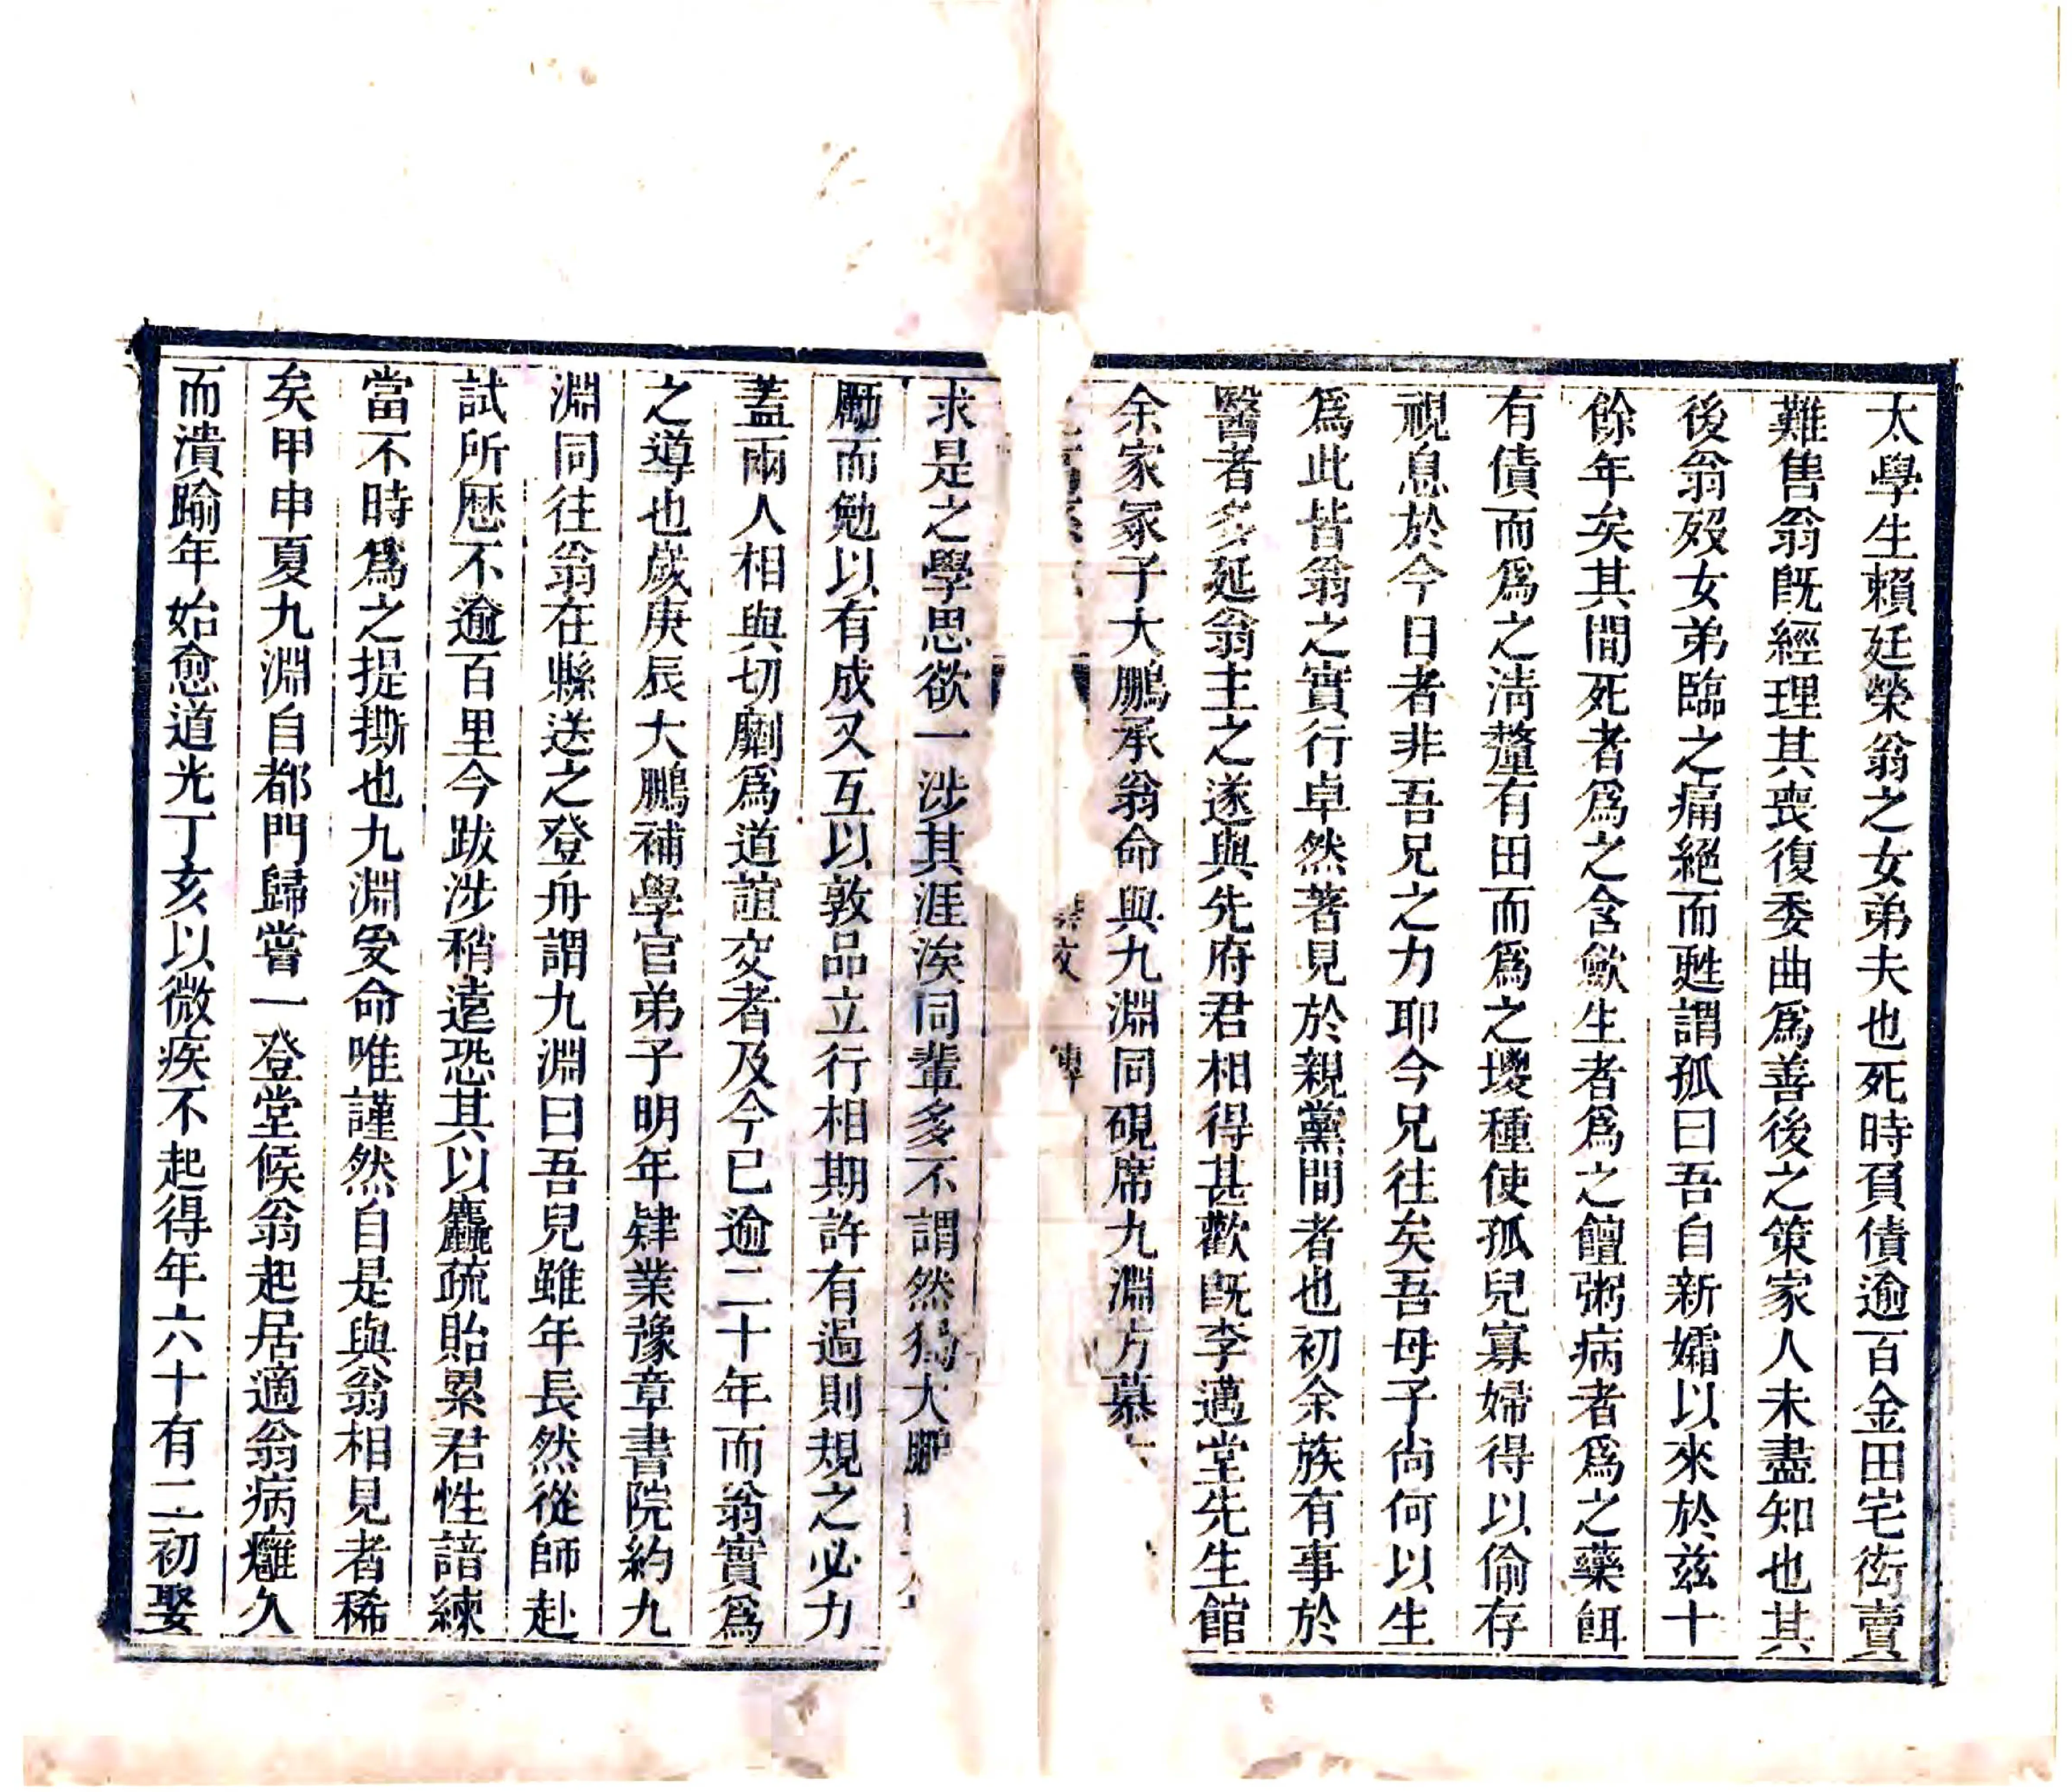 太學生賴廷榮翁之女弟夫也死時負債逾百金田宅衒賣
難售翁旣經理其喪復委曲爲善後之策家人未盡知也其
後翁歿女弟臨之痛絕而甦謂孤曰吾自新孀以來於兹十
餘年矣其間死者爲之含歛生者爲之饘粥病者爲之藥餌
有債而爲之淸釐有田而爲之墢種使孤兒寡婦得以偷存
視息於今日者非吾兄之力耶今兄往矣吾母子尙何以生
爲此皆翁之實行卓然著見於親黨間者也初余族有事於
醫者多延翁主之遂與先府君相得甚歡旣李邁堂先生館
余家冢子大鵬承翁命與九淵同硯席九淵方慕
求是之學思欲一涉其涯涘同輩多不謂然獨大鵬
勵而勉以有成又互以敦品立行相期許有過則規之必力
蓋兩人相與切劘爲道誼交者及今已逾二十年而翁實爲
之導也歲庚辰大鵬補學官弟子明年肄業豫章書院約九
淵同往翁在縣送之登舟謂九淵曰吾兒雖年長然從師赴
試所歷不逾百里今跋涉稍遠恐其以麤疏貽累君性諳練
當不時爲之提撕也九淵受命唯謹然自是與翁相見者稀
矣甲申夏九淵自都門歸嘗一登堂候翁起居適翁病癰久
而潰踰年始愈道光丁亥以微疾不起得年六十有二初娶